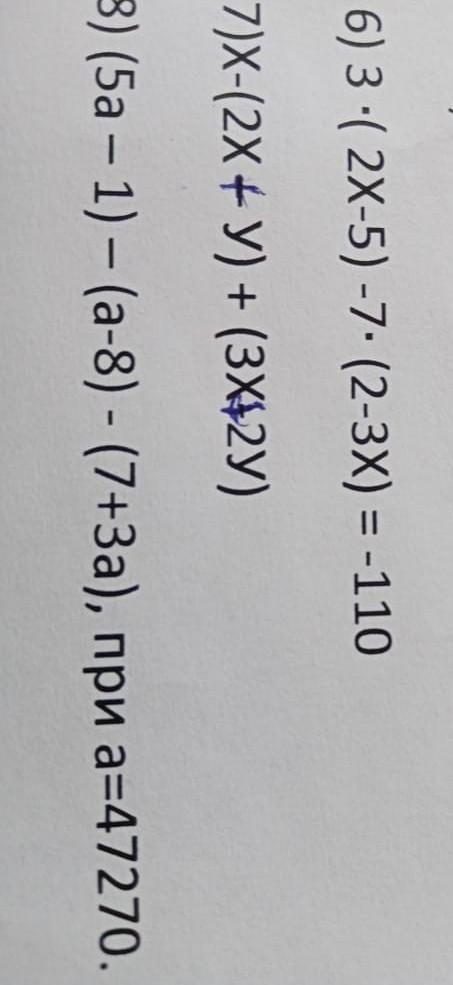 6) 3 ·( 2X-5) -7· (2-3X) = -110
7)X-(2X + У) + (3X+2У)
8) (5а – 1) – (а-8) - (7+3а), при а=47270.